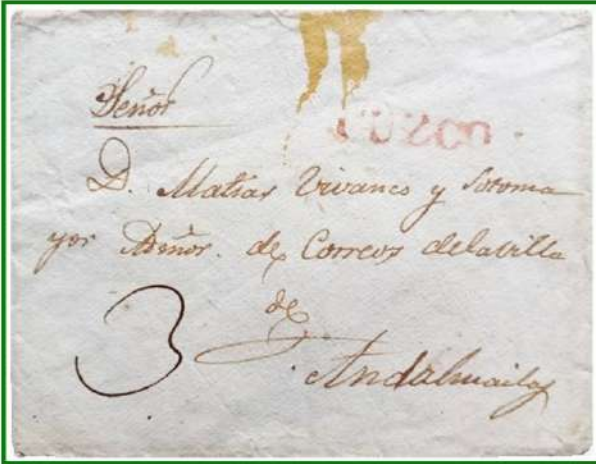 Señor
CUZCO
D. Matias Vivanco y Sotoma
yor Admor. de Correos delavilla
de
3
Andahuailas